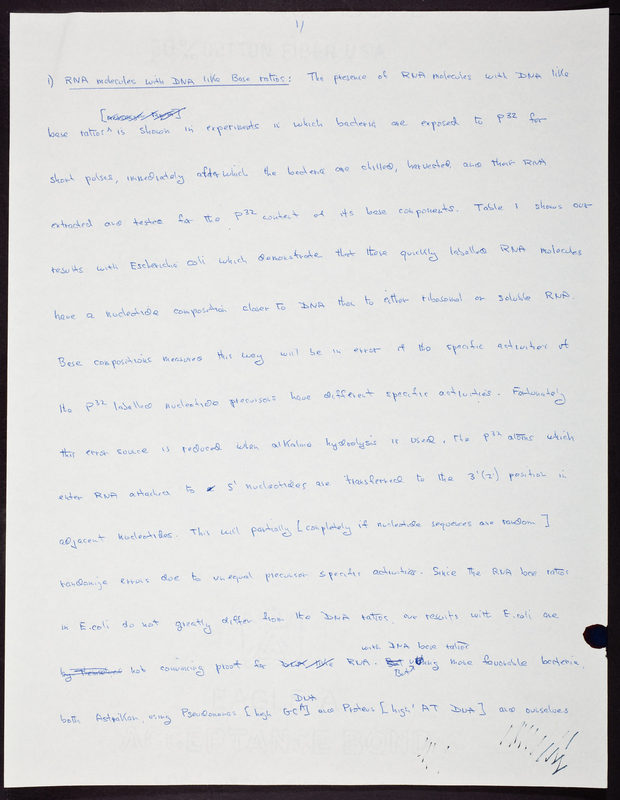 1/
1) RNA molecules with DNA like Base ratios: The presence of RNA molecules with DNA like
base ratios ^ is shown in experiments in which bacteria are exposed to P32 for
short pulses, immediately after which the bacteria are chilled, harvested, and their RNA
extracted and tested for the P32 content of its base components. Table 1 shows our
results with Escherichia coli which demonstrate that these quickly labelled RNA molecules
have a nucleotide composition closer to DNA than to either ribosomal or soluble RNA.
Base compositions measured this way will be in error if the specific activities of
the P32 labelled nucleotide precursors have different specific activities. Fortunately
this error source is reduced when alkaline hydrolysis is used. The P32 atoms which
enter RNA attached to 5' nucleotides are transferred to the 3'(2) position in
adjacent nucleotides. This will partially [completely if nucleotide sequences are random]
randomize errors due to unequal precursor specific activities. Since the RNA base ratios
in E.coli do not greatly differ from the DNA ratios, our results with E.coli are
with DNA base ratios
by themselves not convincing proof for DNA like RNA. But using more favorable bacteria,
DNA
both Astrakan, using Pseudomonas [high GC ^] and Proteus [high AT DNA] and ourselves